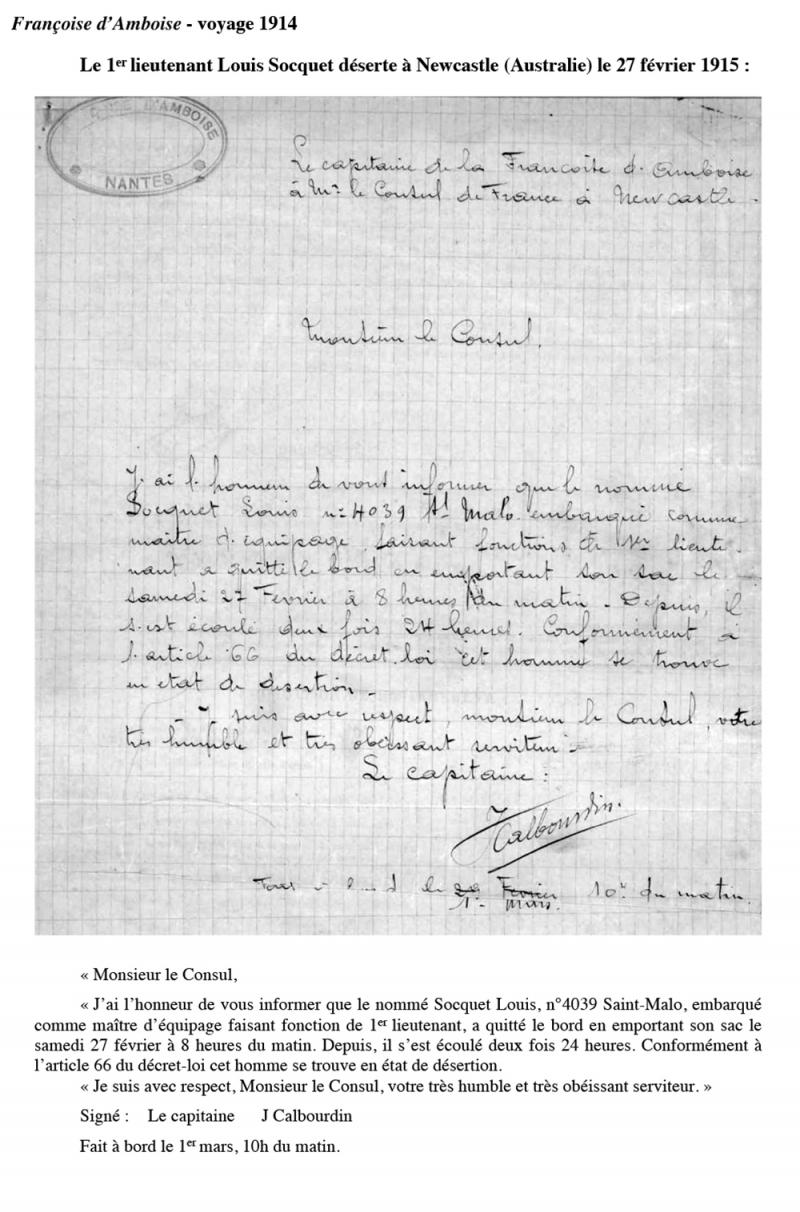 Françoise d’Amboise - voyage 1914
Le 1er lieutenant Louis Socquet déserte à Newcastle (Australie) le 27 février 1915 :
D'AMBOISE
NANTES
Le capitaine de la Francoise d. Amboise
à Mr le Consul de France à Newcastle.
Monsieur le Consul.
J. ai l. honneur de vous informer que le nommé
Socquet Louis n= 4039 St Malo. embarqué comme
maitre d. équipage, faisant fonctions de 1er lieute-
nant a quitté le bord en emportant son sac le
samedi 27 Fevrier à 8 heures du matin. Depuis, il
s. est écoulé deux fois 24 heures. Conformément à
l. article 66 du décret. loi cet homme se trouve
en etat de desertion -
- J. suis avec respect, monsieur le Consul, votre
très humble et très obéissant serviteur -
Le capitaine :
J Calbourdin.
le Fevrier 10h du matin.
1er mars.
« Monsieur le Consul,
« J’ai l’honneur de vous informer que le nommé Socquet Louis, n°4039 Saint-Malo, embarqué
comme maître d’équipage faisant fonction de 1er lieutenant, a quitté le bord en emportant son sac le
samedi 27 février à 8 heures du matin. Depuis, il s’est écoulé deux fois 24 heures. Conformément à
l’article 66 du décret-loi cet homme se trouve en état de désertion.
« Je suis avec respect, Monsieur le Consul, votre très humble et très obéissant serviteur. »
Signé : Le capitaine J Calbourdin
Fait à bord le 1er mars, 10h du matin.